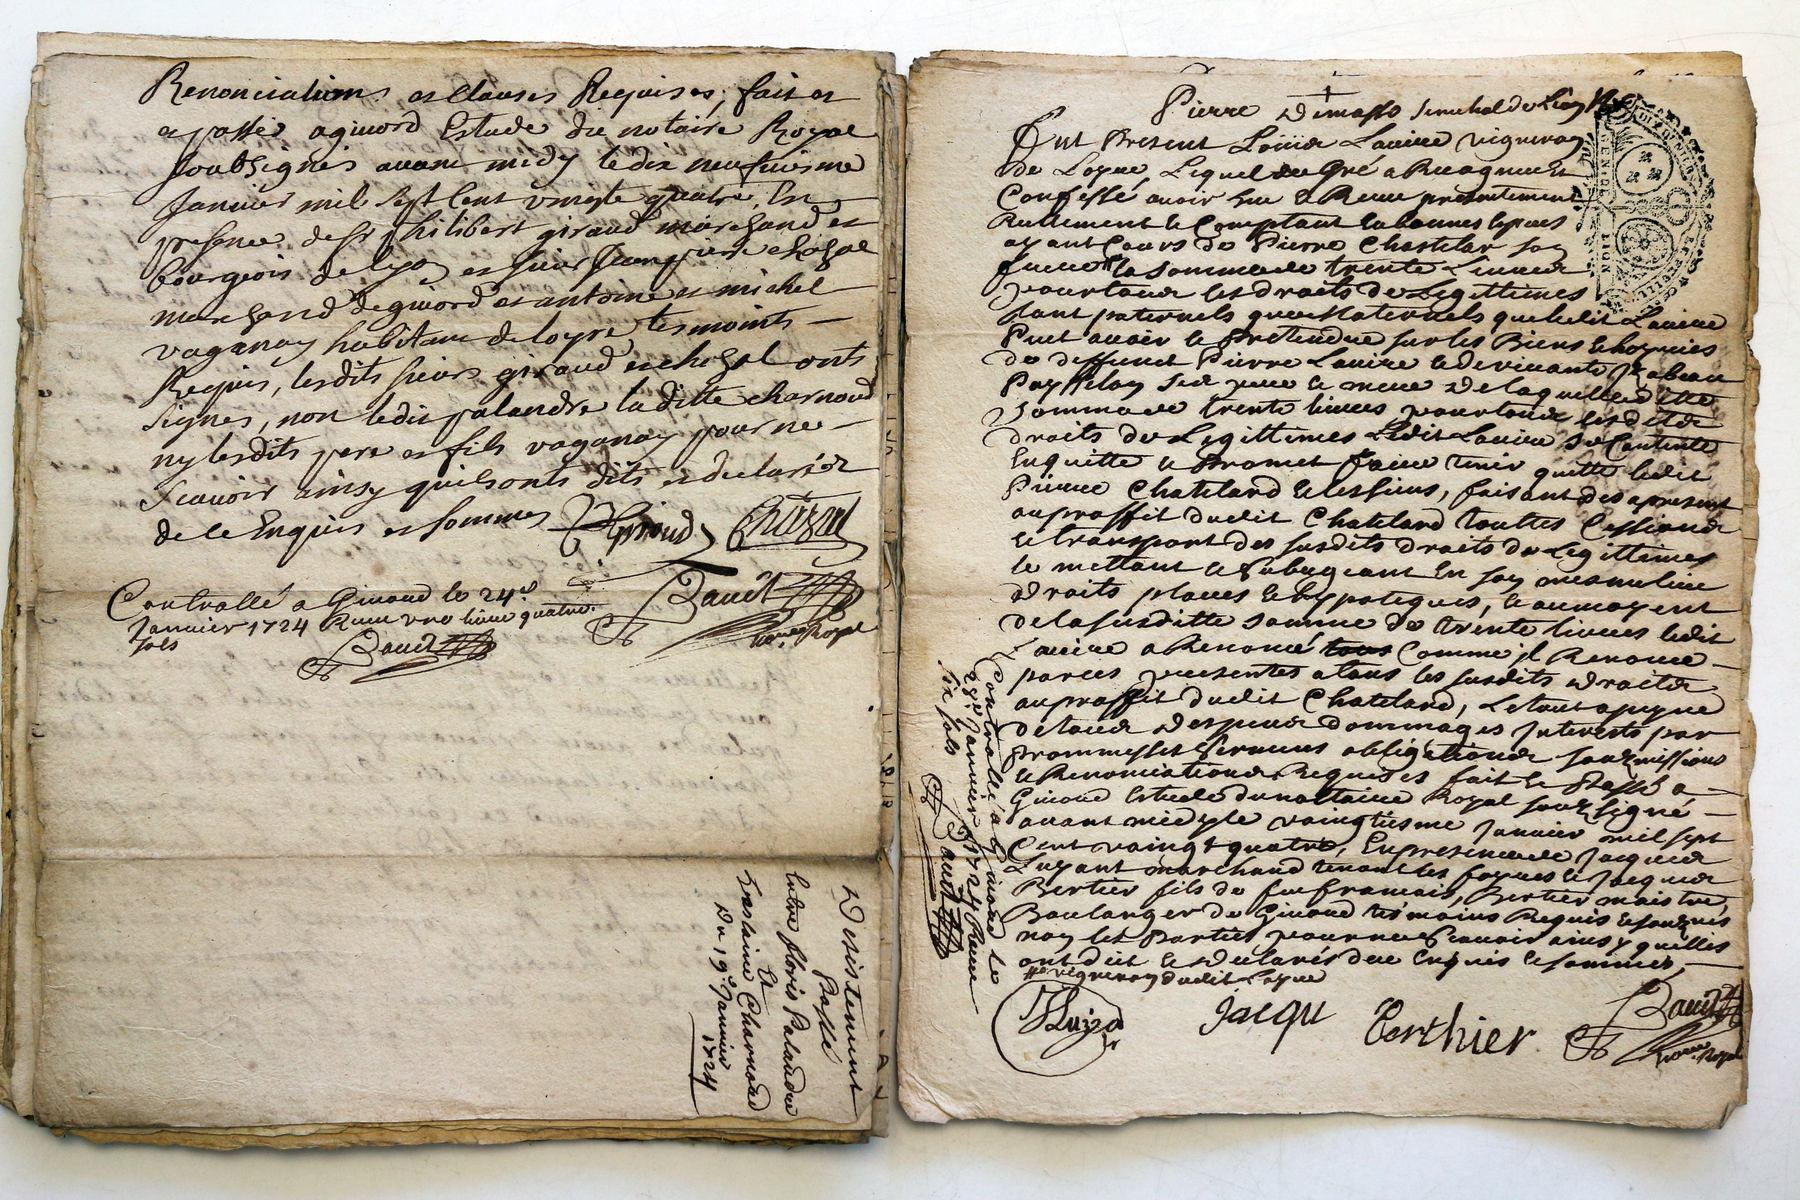 Renonciations et Clauses Requises, fait et
et passé a givord Estude du notaire Royal
soubsignés avant midy le dix neufviesme
Janvier mil sept Cent vingte quatre, En
presence de sr philibert giraud marchand et
bourgeois de lyon et sieur Jean pierre chozal
marchand de givord et antoine et michel
vaganay habitant de loyre tesmoints
Requis, lesdits sieurs giraud et chozal onts
signés, non ledit palandre la ditte charnoud
ny lesdits pere et fils vaganay pour ne
scavoir ainsy quils onts dits et declarés
de le Enquis et sommes
Giroud Chozal
Bauet
no.re Royal
Controllé a Givord le 24e
Janvier 1724 Receu une livre quatre
sols
Bauet
Desistement
Passé
Entre floris Palandre
Et
Charnoud
Du 19e Janvier
1724
Pierre Demasso senechal de Lion
Ont Present Lavire vigneron
de Loyre, Lequel de Gré a Recogneu Et
Confessé avoir Eu & Receu presentement
Reellement & Comptant En bonnes Especes
ayant Cours de Pierre Chatelar son
la somme de trente Livres
pour tous les droits de Legittimes
tant paternels que Maternels que ledit Lavire
Peut avoir & Pretendre sur les Biens & hoyries
de deffunct Pierre Lavire & devivante Izabeau
ses pere & mere De laquelle ditte
Somme de trente livres pour tous lesdits
droits de Legittimes Ledit Lavire se Contente
En quitte & Promet faire tenir quitte ledit
Pierre Chatelard & les siens, faisant des apresent
au proffit dudit Chatelard touttes Cessions
& transport des susdits droits de Legittimes
le mettant & Subrogeant En son mesme lieu
droits places & hypoteques, & au moyent
de la susditte somme de trente livres ledit
Lavire a Renoncé Comme jl Renonce
par ces presentes a tous les susdits droits
au proffit dudit Chatelard, Le tout a peyne
de tous Despens dommages Interests par
Prommesses Sermens obligations soubzmissions
& Renonciations Requises fait & Passé a
Givord Estude du nottaire Royal soubzsigné
avant midy le vaingtiesme Janvier mil sept
Cent vaingt quatre, En presence de Jacques
marchand tenant les foyres & Jacques
Bertier fils de feu francois, Bertier maistre
Boulanger de Givord tesmoins Requis & soubzsignés
non les Parties pour ne Scavoir ainsy quelles
ont dit & declarés de ce Enquis & sommes,
vigneron dudit Loyre
Jacque Berthier
Bauet
no.re Royal
Controllé a Givord Le
28e Janvier 1724 Receu
six sols
Bauet